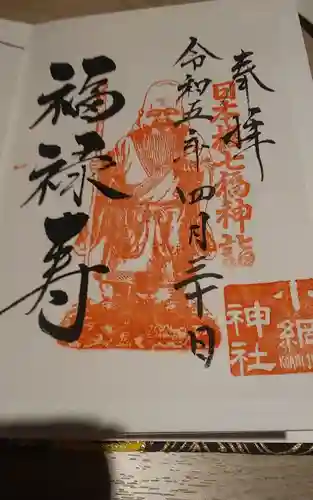 奉拝
日本橋七福神詣
令和五年四月三十日
福禄寿
小網
神社
KOAMI